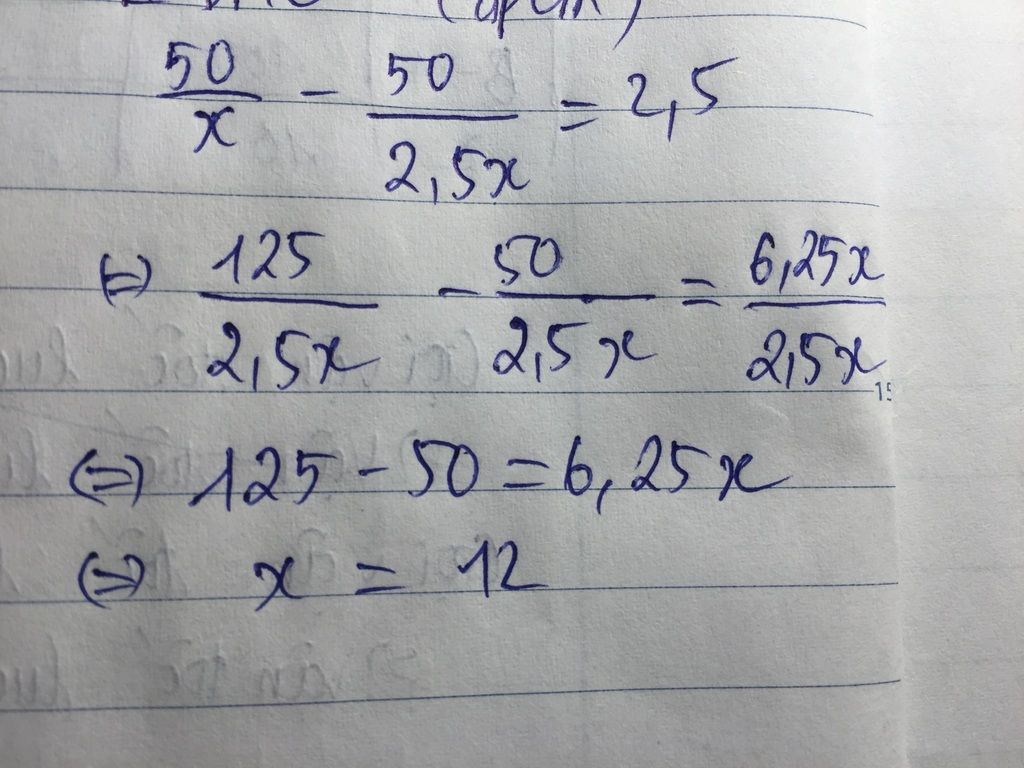 50/x - 50/2,5x = 2,5
(=) 125/2,5x - 50/2,5x = 6,25x/2,5x
(=) 125 - 50 = 6,25x
(=) x = 12
15